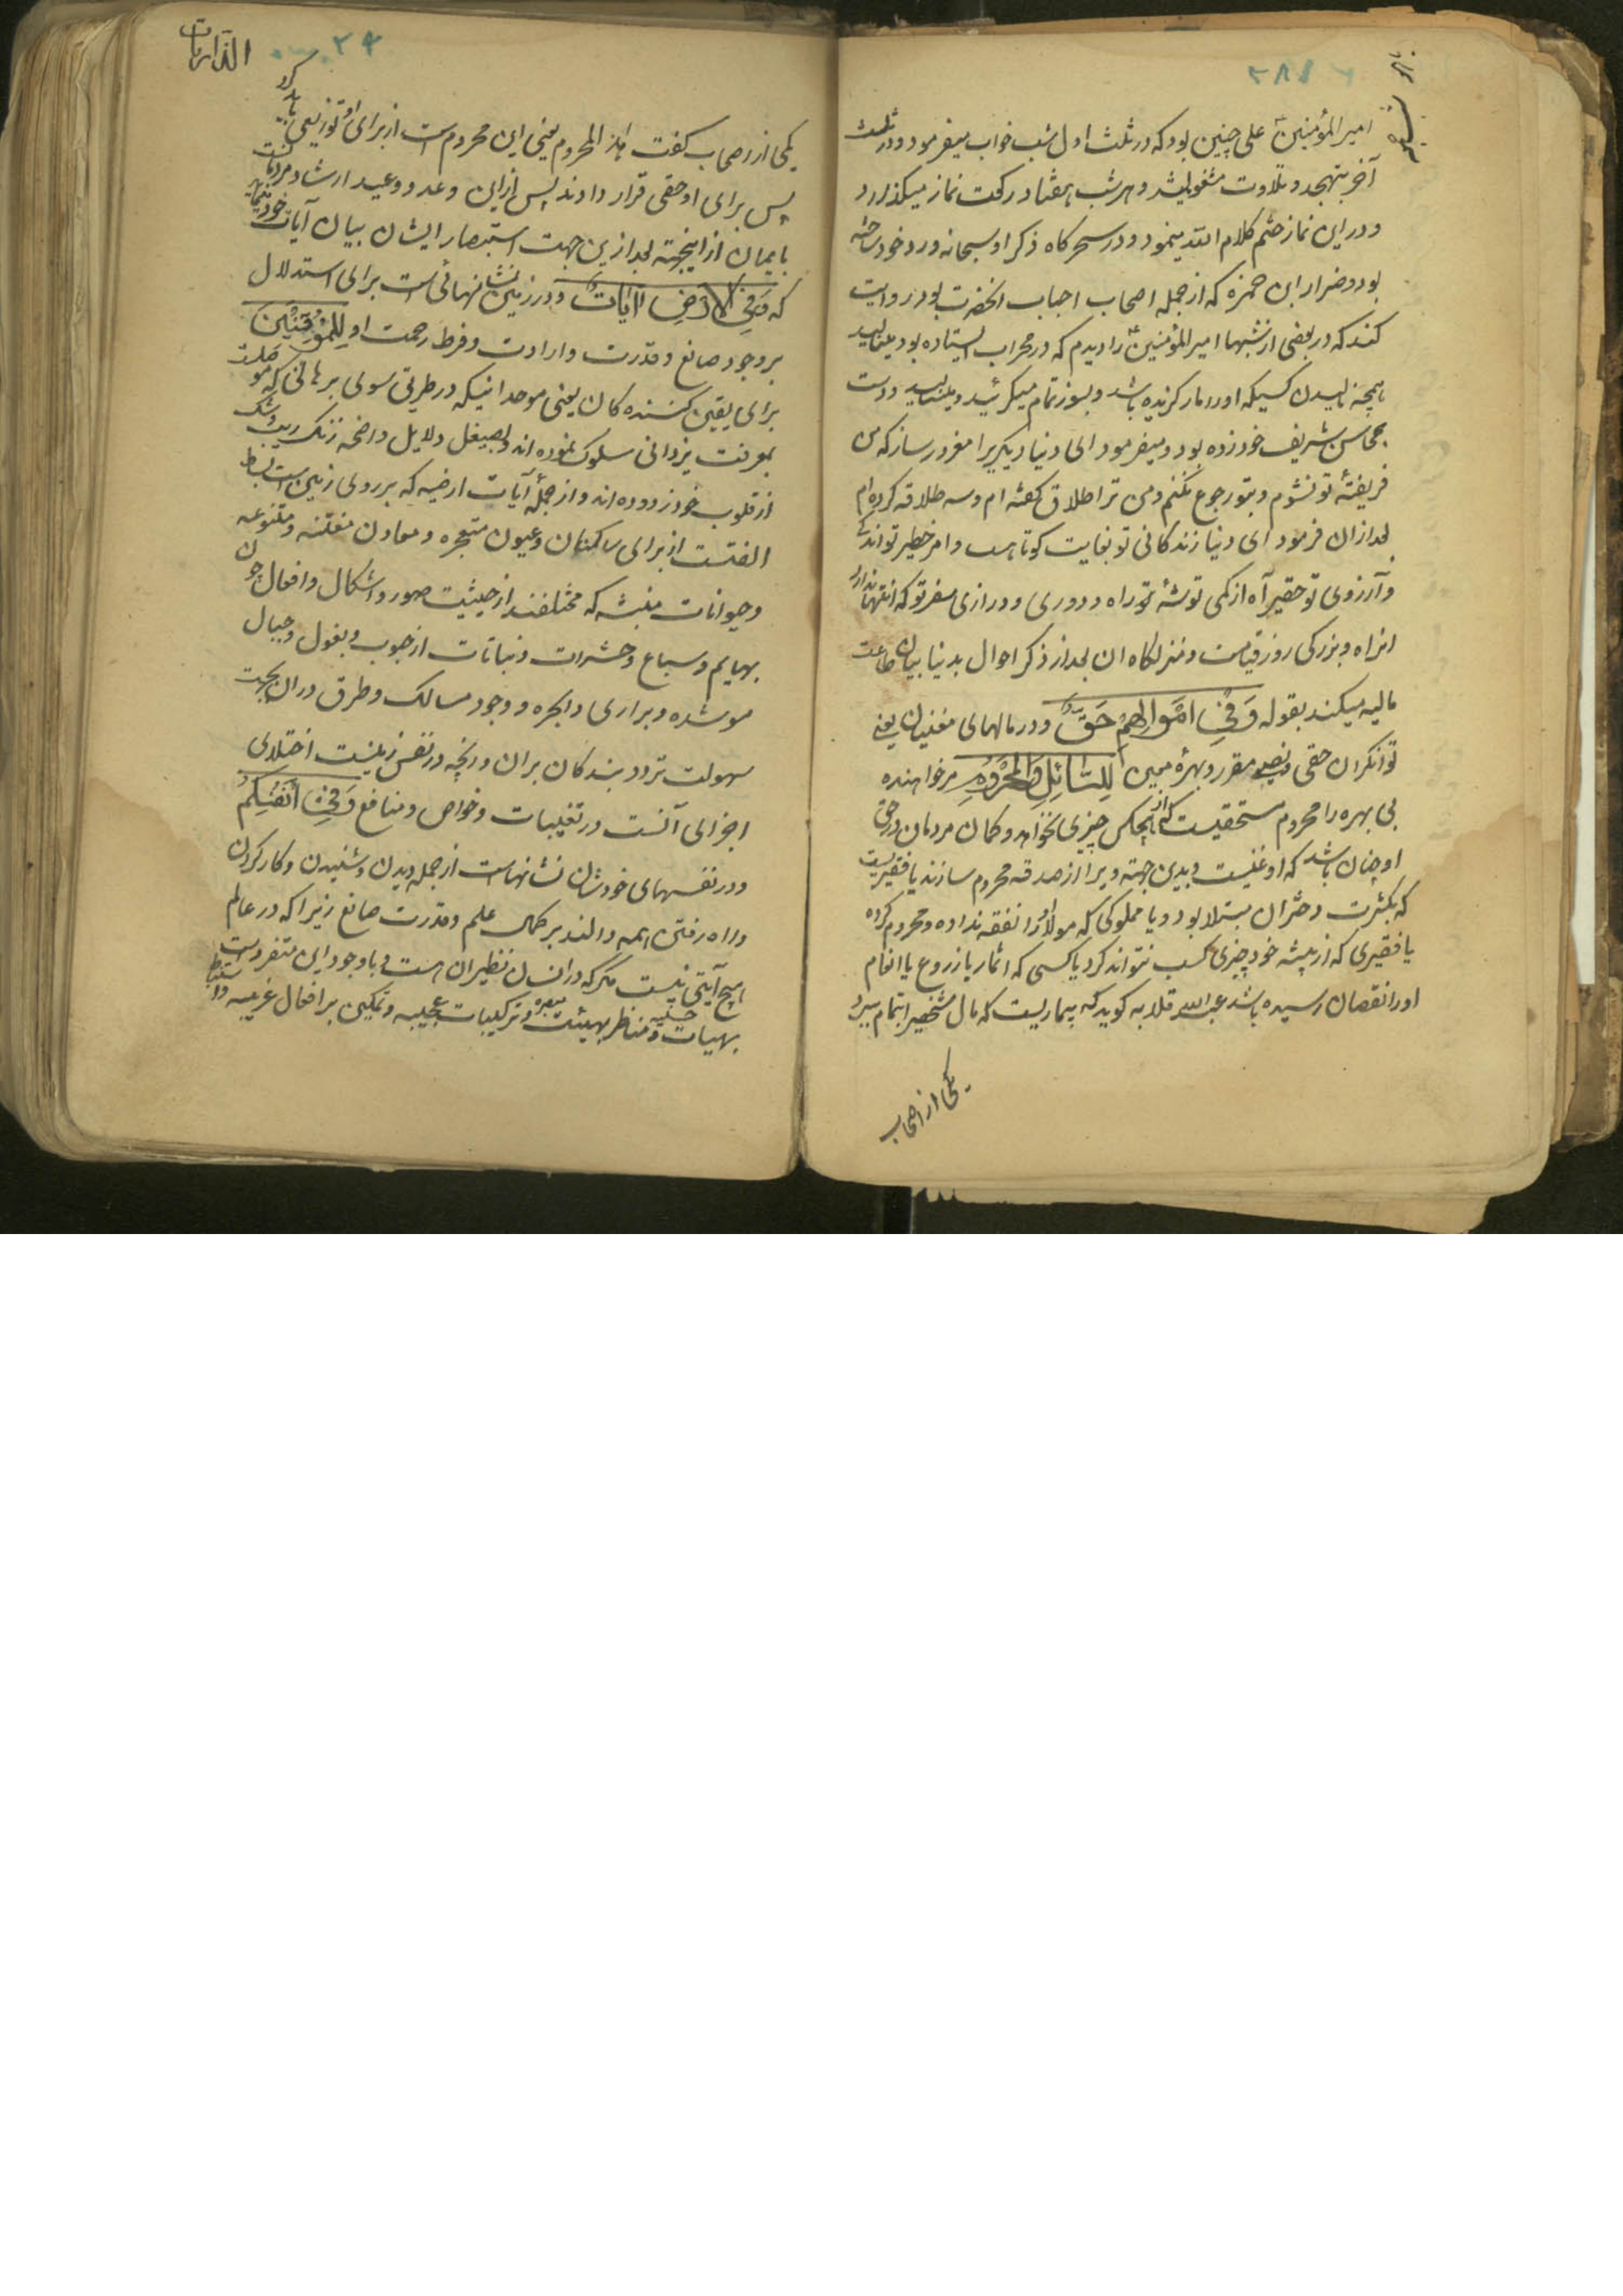 امیر المؤمنین علی چنین بود که در ثلث اول شب خواب میفرمود و در ثلث
آخر بتهجد و تلاوت مشغول میشد و هر شب هفتاد رکعت نماز میکذارد
و در این نماز ختم کلام الله مینمود و در سحرکاه ذکر او سبحانه ورد خود ساخته
بود و ضرار ابن حمزه که از جمله اصحاب احباب انحضرت بود روایت
کند که در بعضی از شبها امیر المؤمنین را دیدم که در محراب ایستاده بود و مینالید
همچه نالیدن کسیکه اورا مار کزیده باشد و بسوز تمام میکرئید و مینالید و دست
بمحاسن شریف خود زده بود و میفرمود ای دنیا دیکریرا مغرور ساز که من
فریفتهٔ تو نشوم و بتو رجوع نکنم و من ترا طلاق کفته ام و سه طلاقه کرده ام
بعد ازان فرمود ای دنیا زندکانی تو بغایت کوتاهست و امر خطیر تو اندک
و آرزوی تو حقیر آه از کمی توشه تو راه و دوری و درازی سفر تو که انتها ندارد
از راه و بزرکی روز قیامت و منزلکاه ان بعد از ذکر احوال بدنیا بیان طاعت
مالیه میکند بقوله وَفِي اَمْوَالِهِمْ حَقٌّ و در مالهای مغنیان یعنی
توانکران حقی و نصیبی مقرر و بهرهٔ مبین لِلسَّائِلِ وَالْمَحْرُومِ مر خواهنده
بی بهره را محروم مستحقیست که از هیچکس چیزی نخواهد و کمان مردمان در حق
او چنان باشد که او غنیست و بدین جهته ویرا از صدقه محروم سازند یا فقیریست
که بکثرت دختران مبتلا بود و یا مملوکی که مولا اورا نفقه نداده و محروم کرده
یا فقیری که از پیشه خود چیزی کسب نتواند کرد یا کسی که اثمار یا زروع یا انعام
اورا نقصان رسیده باشد قلابه کوید که بیماریست که مال شخصیرا بتمام ببرد
یکی از اصحاب
الذاریات
یکی از اصحاب کفت هذا المحروم یعنی این محروم است از برای او توزیعی باید کرد
پس برای او حقی قرار دادند پس از این وعد و وعید ارشاد مردمان
بایمان از اینجهته بعد ازین جهت استبصار ایشان بیان آیات خود میفرماید
که وَفِي الْاَرْضِ اٰيَاتٌ و در زمین نشانهائیست برای استدلال
بر وجود صانع و قدرت و ارادت و فرط رحمت او لِلْمُوقِنِينَ
برای یقین کننده کان یعنی موحدانیکه در طریق سوی برهانی که موصلست
بمعرفت یزدانی سلوک نموده اند و بصیغل دلایل واضحه زنک ریب و شک
از قلوب خود زدوده اند و از جمله آیات ارضیه که بر روی زمین است بسط
انست از برای ساکنان و عیون متفجره و معادن مفتنه و متنوعه
و حیوانات منبثه که مختلفند از حیثیت صور و اشکال و افعال چون
بهایم و سباع و حشرات و نباتات از حبوب و بغول و جبال
موشده و براری و ابحره و وجود مسالک و طرق دران بجهت
سهولت تردد بندکان بران و رنچه در نفس زمینست اختلای
اجزای آنست در تغلیبات و خواص و منافع وَفِي اَنْفُسِكُمْ
و در نفسهای خودشان نشانهاست از جمله دیدن و شنیدن و کار کردن
و راه رفتن همه دالند بر کمال علم و قدرت صانع زیرا که در عالم
هیچ آیتی نیست مکر که در انسان نظیر ان هست و با وجود این متفرد است
بهیات و مناظر بهیئت و ترکیبات عجیبه و تمکین بر افعال غریبه و استنباط